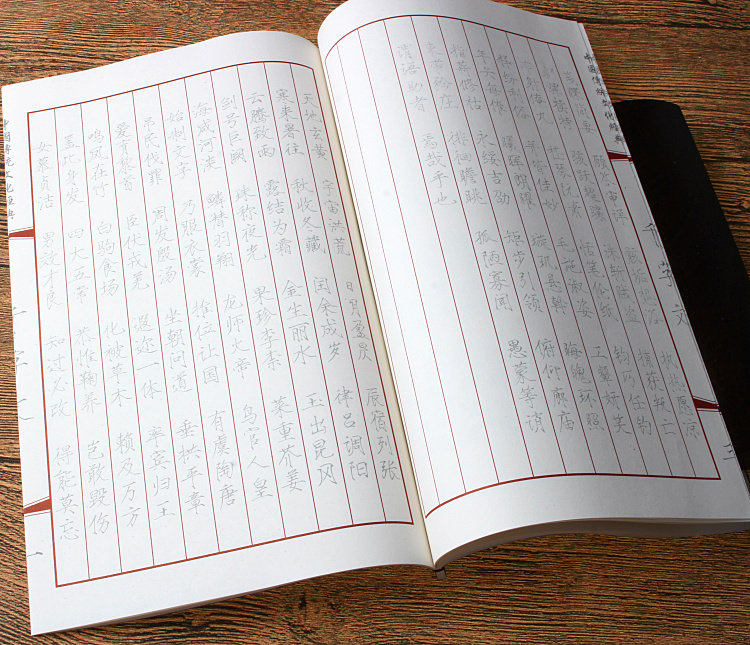 天地玄黄 宇宙洪荒 日月盈昃 辰宿列张
寒来暑往 秋收冬藏 闰余成岁 律吕调阳
云腾致雨 露结为霜 金生丽水 玉出昆冈
剑号巨阙 珠称夜光 果珍李柰 菜重芥姜
海咸河淡 鳞潜羽翔 龙师火帝 鸟官人皇
始制文字 乃服衣裳 推位让国 有虞陶唐
吊民伐罪 周发殷汤 坐朝问道 垂拱平章
爱育黎首 臣伏戎羌 遐迩一体 率宾归王
鸣凤在竹 白驹食场 化被草木 赖及万方
盖此身发 四大五常 恭惟鞠养 岂敢毁伤
女慕贞洁 男效才良 知过必改 得能莫忘
一
中國傳統文化經典
千字文
三
笺牒简要 顾答审详 骸垢想浴 执热愿凉
驴骡犊特 骇跃超骧 诛斩贼盗 捕获叛亡
布射僚丸 嵇琴阮啸 恬笔伦纸 钧巧任钓
释纷利俗 并皆佳妙 毛施淑姿 工颦妍笑
年矢每催 曦晖朗曜 璇玑悬斡 晦魄环照
指薪修祜 永绥吉劭 矩步引领 俯仰廊庙
束带矜庄 徘徊瞻眺 孤陋寡闻 愚蒙等诮
谓语助者 焉哉乎也